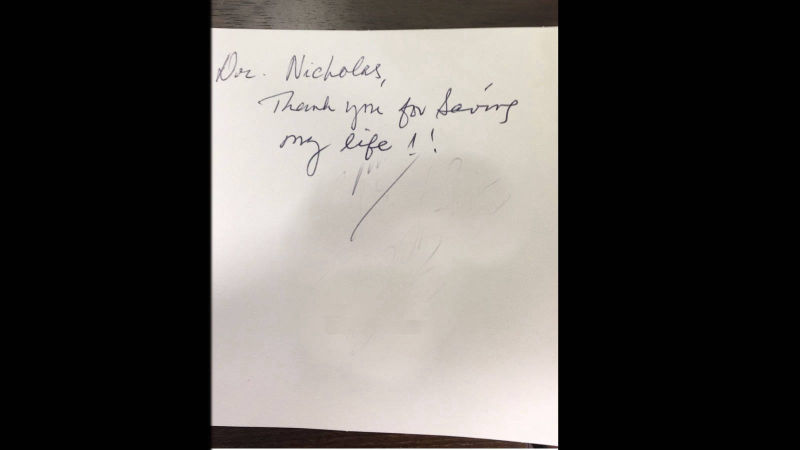 Doc. Nicholas,
Thank you for saving
my life!!